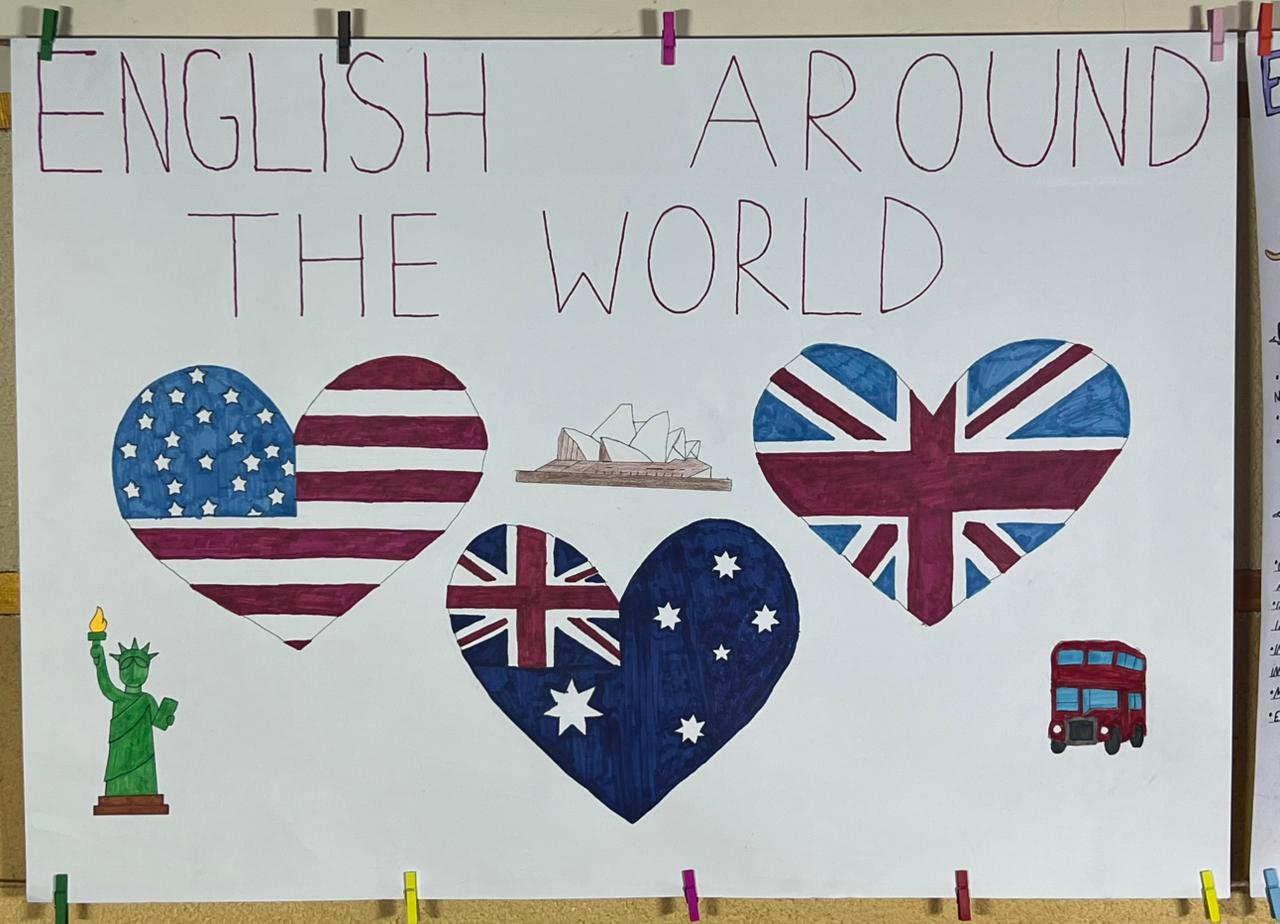 ENGLISH AROUND
THE WORLD